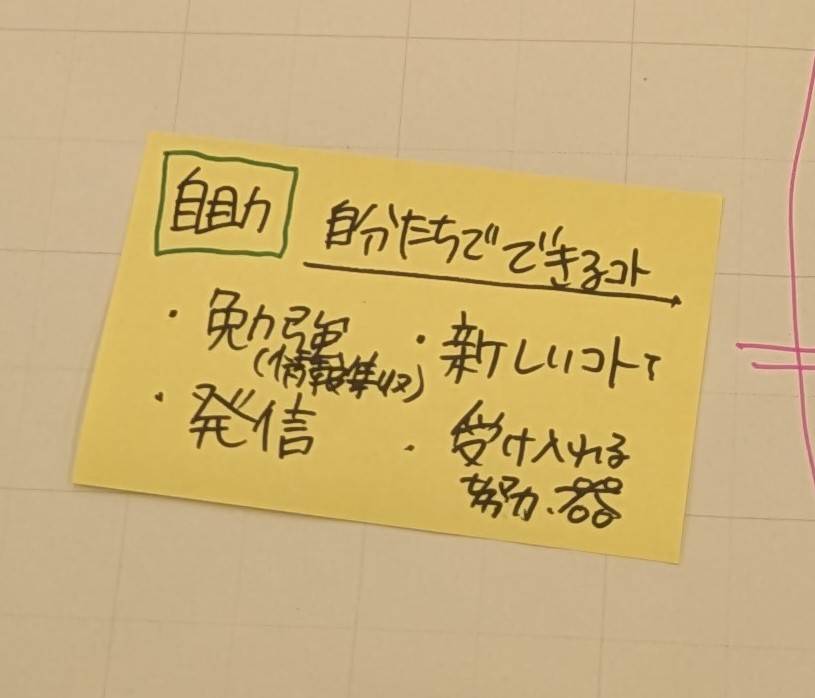 自助
自分たちでできるコト
・勉強
(情報集収)
・発信
・新しいコト
・受け入れる
努力、器